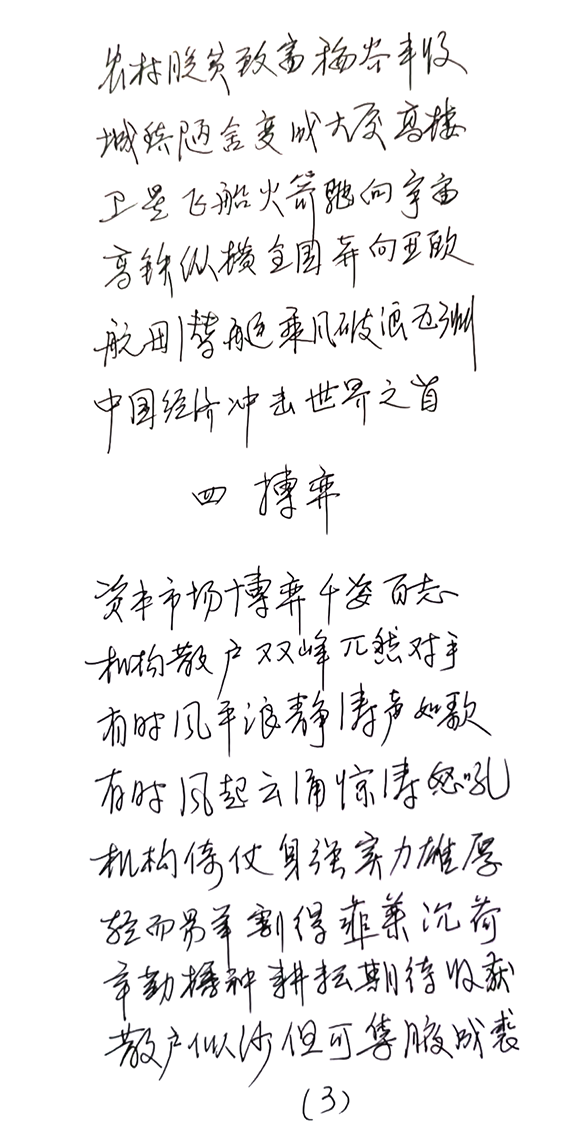 农村脱贫致富梅岺丰收
城镇陋舍变成大厦高楼
卫星飞船火箭驰向宇宙
高铁纵横全国奔向亚欧
航母潜艇乘风破浪五洲
中国经济冲击世界之首
四 搏弈
资本市场博弈千姿百态
机构散户双峰兀然对手
有时风平浪静涛声如歌
有时风起云涌惊涛怒吼
机构倚仗身强实力雄厚
轻而易举割得韭菜沉荷
辛勤播种耕耘期待收获
散户似沙但可集腋成裘
(3)